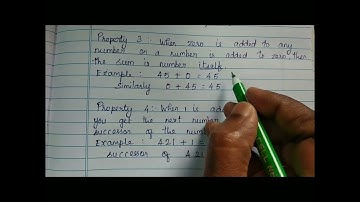 Property 3: When zero is added to any
number or a number is added to zero, then
the sum is number itself.
Example: 45 + 0 = 45
Similarly 0 + 45 = 45
Property 4: When 1 is add
you get the next number
successor of the number
Example: 421 + 1 =
successor of 421